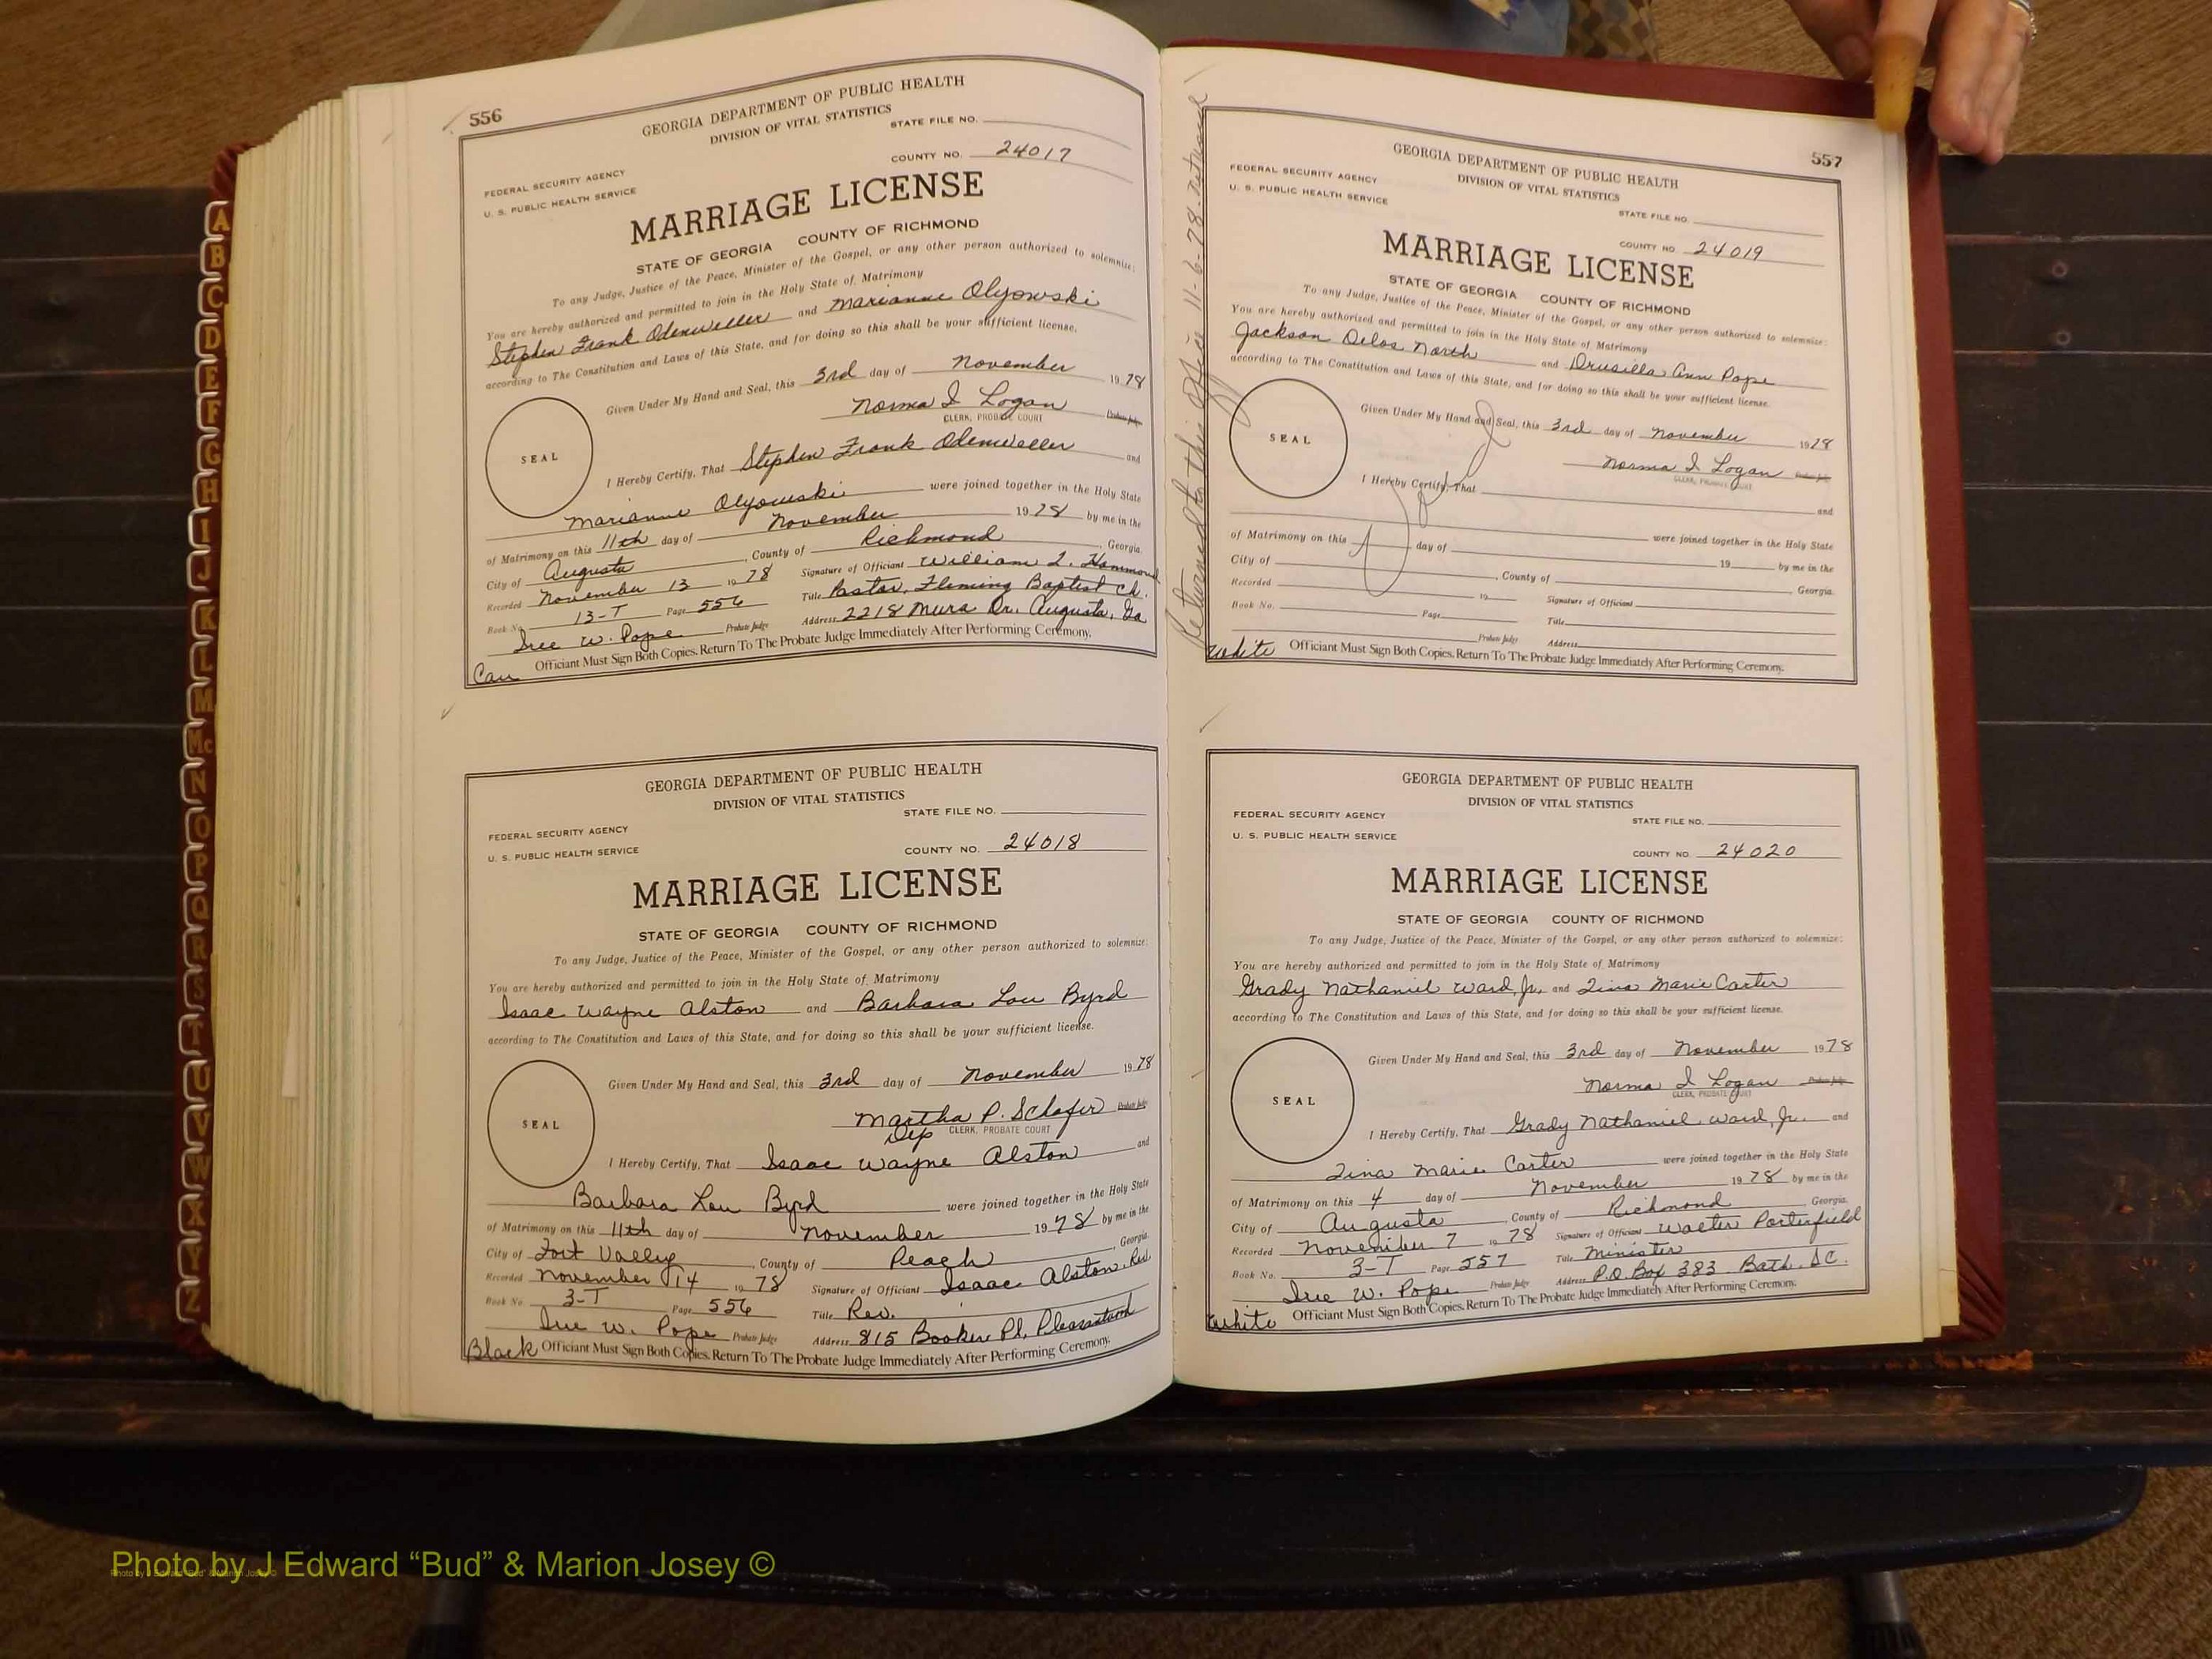 556
GEORGIA DEPARTMENT OF PUBLIC HEALTH
DIVISION OF VITAL STATISTICS
STATE FILE NO.
FEDERAL SECURITY AGENCY
U. S. PUBLIC HEALTH SERVICE
COUNTY NO. 24017
MARRIAGE LICENSE
STATE OF GEORGIA COUNTY OF RICHMOND
To any Judge, Justice of the Peace, Minister of the Gospel, or any other person authorized to solemnize:
You are hereby authorized and permitted to join in the Holy State of Matrimony
Stephen Frank Odenweller and Marianne Olyowski
according to The Constitution and Laws of this State, and for doing so this shall be your sufficient license.
Given Under My Hand and Seal, this 3rd day of November 1978
Norma I Logan Probate Judge
CLERK, PROBATE COURT
SEAL
I Hereby Certify, That Stephen Frank Odenweller and
Marianne Olyowski were joined together in the Holy State
of Matrimony on this 11th day of November 1978 by me in the
City of Augusta, County of Richmond, Georgia.
Recorded November 13 1978 Signature of Officiant William L. Hammond
Book No. 13-T Page 556 Title Pastor, Fleming Baptist Ch.
Sue W. Pope Probate Judge Address 2218 Mura Dr. Augusta, Ga
Officiant Must Sign Both Copies. Return To The Probate Judge Immediately After Performing Ceremony.
Cau
GEORGIA DEPARTMENT OF PUBLIC HEALTH
DIVISION OF VITAL STATISTICS
STATE FILE NO.
FEDERAL SECURITY AGENCY
U. S. PUBLIC HEALTH SERVICE
COUNTY NO. 24018
MARRIAGE LICENSE
STATE OF GEORGIA COUNTY OF RICHMOND
To any Judge, Justice of the Peace, Minister of the Gospel, or any other person authorized to solemnize:
You are hereby authorized and permitted to join in the Holy State of Matrimony
Isaac Wayne Alston and Barbara Lou Byrd
according to The Constitution and Laws of this State, and for doing so this shall be your sufficient license.
Given Under My Hand and Seal, this 3rd day of November 1978
Martha P. Schafer Probate Judge
Dep CLERK, PROBATE COURT
SEAL
I Hereby Certify, That Isaac Wayne Alston and
Barbara Lou Byrd were joined together in the Holy State
of Matrimony on this 11th day of November 1978 by me in the
City of Fort Valley, County of Peach, Georgia.
Recorded November 14 1978 Signature of Officiant Isaac Alston, Rev.
Book No. 3-T Page 556 Title Rev.
Sue W. Pope Probate Judge Address 815 Booker Pl. Pleasantown
Black Officiant Must Sign Both Copies. Return To The Probate Judge Immediately After Performing Ceremony.
Returned to this office 11-6-78. returned
557
GEORGIA DEPARTMENT OF PUBLIC HEALTH
DIVISION OF VITAL STATISTICS
FEDERAL SECURITY AGENCY
U. S. PUBLIC HEALTH SERVICE
STATE FILE NO.
COUNTY NO. 24019
MARRIAGE LICENSE
STATE OF GEORGIA COUNTY OF RICHMOND
To any Judge, Justice of the Peace, Minister of the Gospel, or any other person authorized to solemnize:
You are hereby authorized and permitted to join in the Holy State of Matrimony
Jackson Delos North and Drusilla Ann Pope
according to The Constitution and Laws of this State, and for doing so this shall be your sufficient license.
Given Under My Hand and Seal, this 3rd day of November 1978
Norma I Logan Probate Judge
CLERK, PROBATE COURT
SEAL
I Hereby Certify, That and
were joined together in the Holy State
of Matrimony on this day of 19 by me in the
City of , County of Georgia.
Recorded 19 Signature of Officiant
Book No. Page Title
Probate Judge Address
White Officiant Must Sign Both Copies. Return To The Probate Judge Immediately After Performing Ceremony.
GEORGIA DEPARTMENT OF PUBLIC HEALTH
DIVISION OF VITAL STATISTICS
FEDERAL SECURITY AGENCY
STATE FILE NO.
U. S. PUBLIC HEALTH SERVICE
COUNTY NO. 24020
MARRIAGE LICENSE
STATE OF GEORGIA COUNTY OF RICHMOND
To any Judge, Justice of the Peace, Minister of the Gospel, or any other person authorized to solemnize:
You are hereby authorized and permitted to join in the Holy State of Matrimony
Grady Nathaniel Ward, Jr. and Tina Marie Carter
according to The Constitution and Laws of this State, and for doing so this shall be your sufficient license.
Given Under My Hand and Seal, this 3rd day of November 1978
Norma I Logan Probate Judge
CLERK, PROBATE COURT
SEAL
I Hereby Certify, That Grady Nathaniel Ward, Jr. and
Tina Marie Carter were joined together in the Holy State
of Matrimony on this 4 day of November 1978 by me in the
City of Augusta, County of Richmond Georgia.
Recorded November 7 1978 Signature of Officiant Walter Porterfield
Book No. 3-T Page 557 Title Minister
Sue W. Pope Probate Judge Address P.O. Box 383 Bath, SC.
White Officiant Must Sign Both Copies. Return To The Probate Judge Immediately After Performing Ceremony.
A
B
C
D
E
F
G
H
I
J
K
L
M
Mc
N
O
P
Q
R
S
T
U
V
W
X
Y
Z
Photo by J Edward “Bud” & Marion Josey ©
Photo by J Edward “Bud” & Marion Josey ©